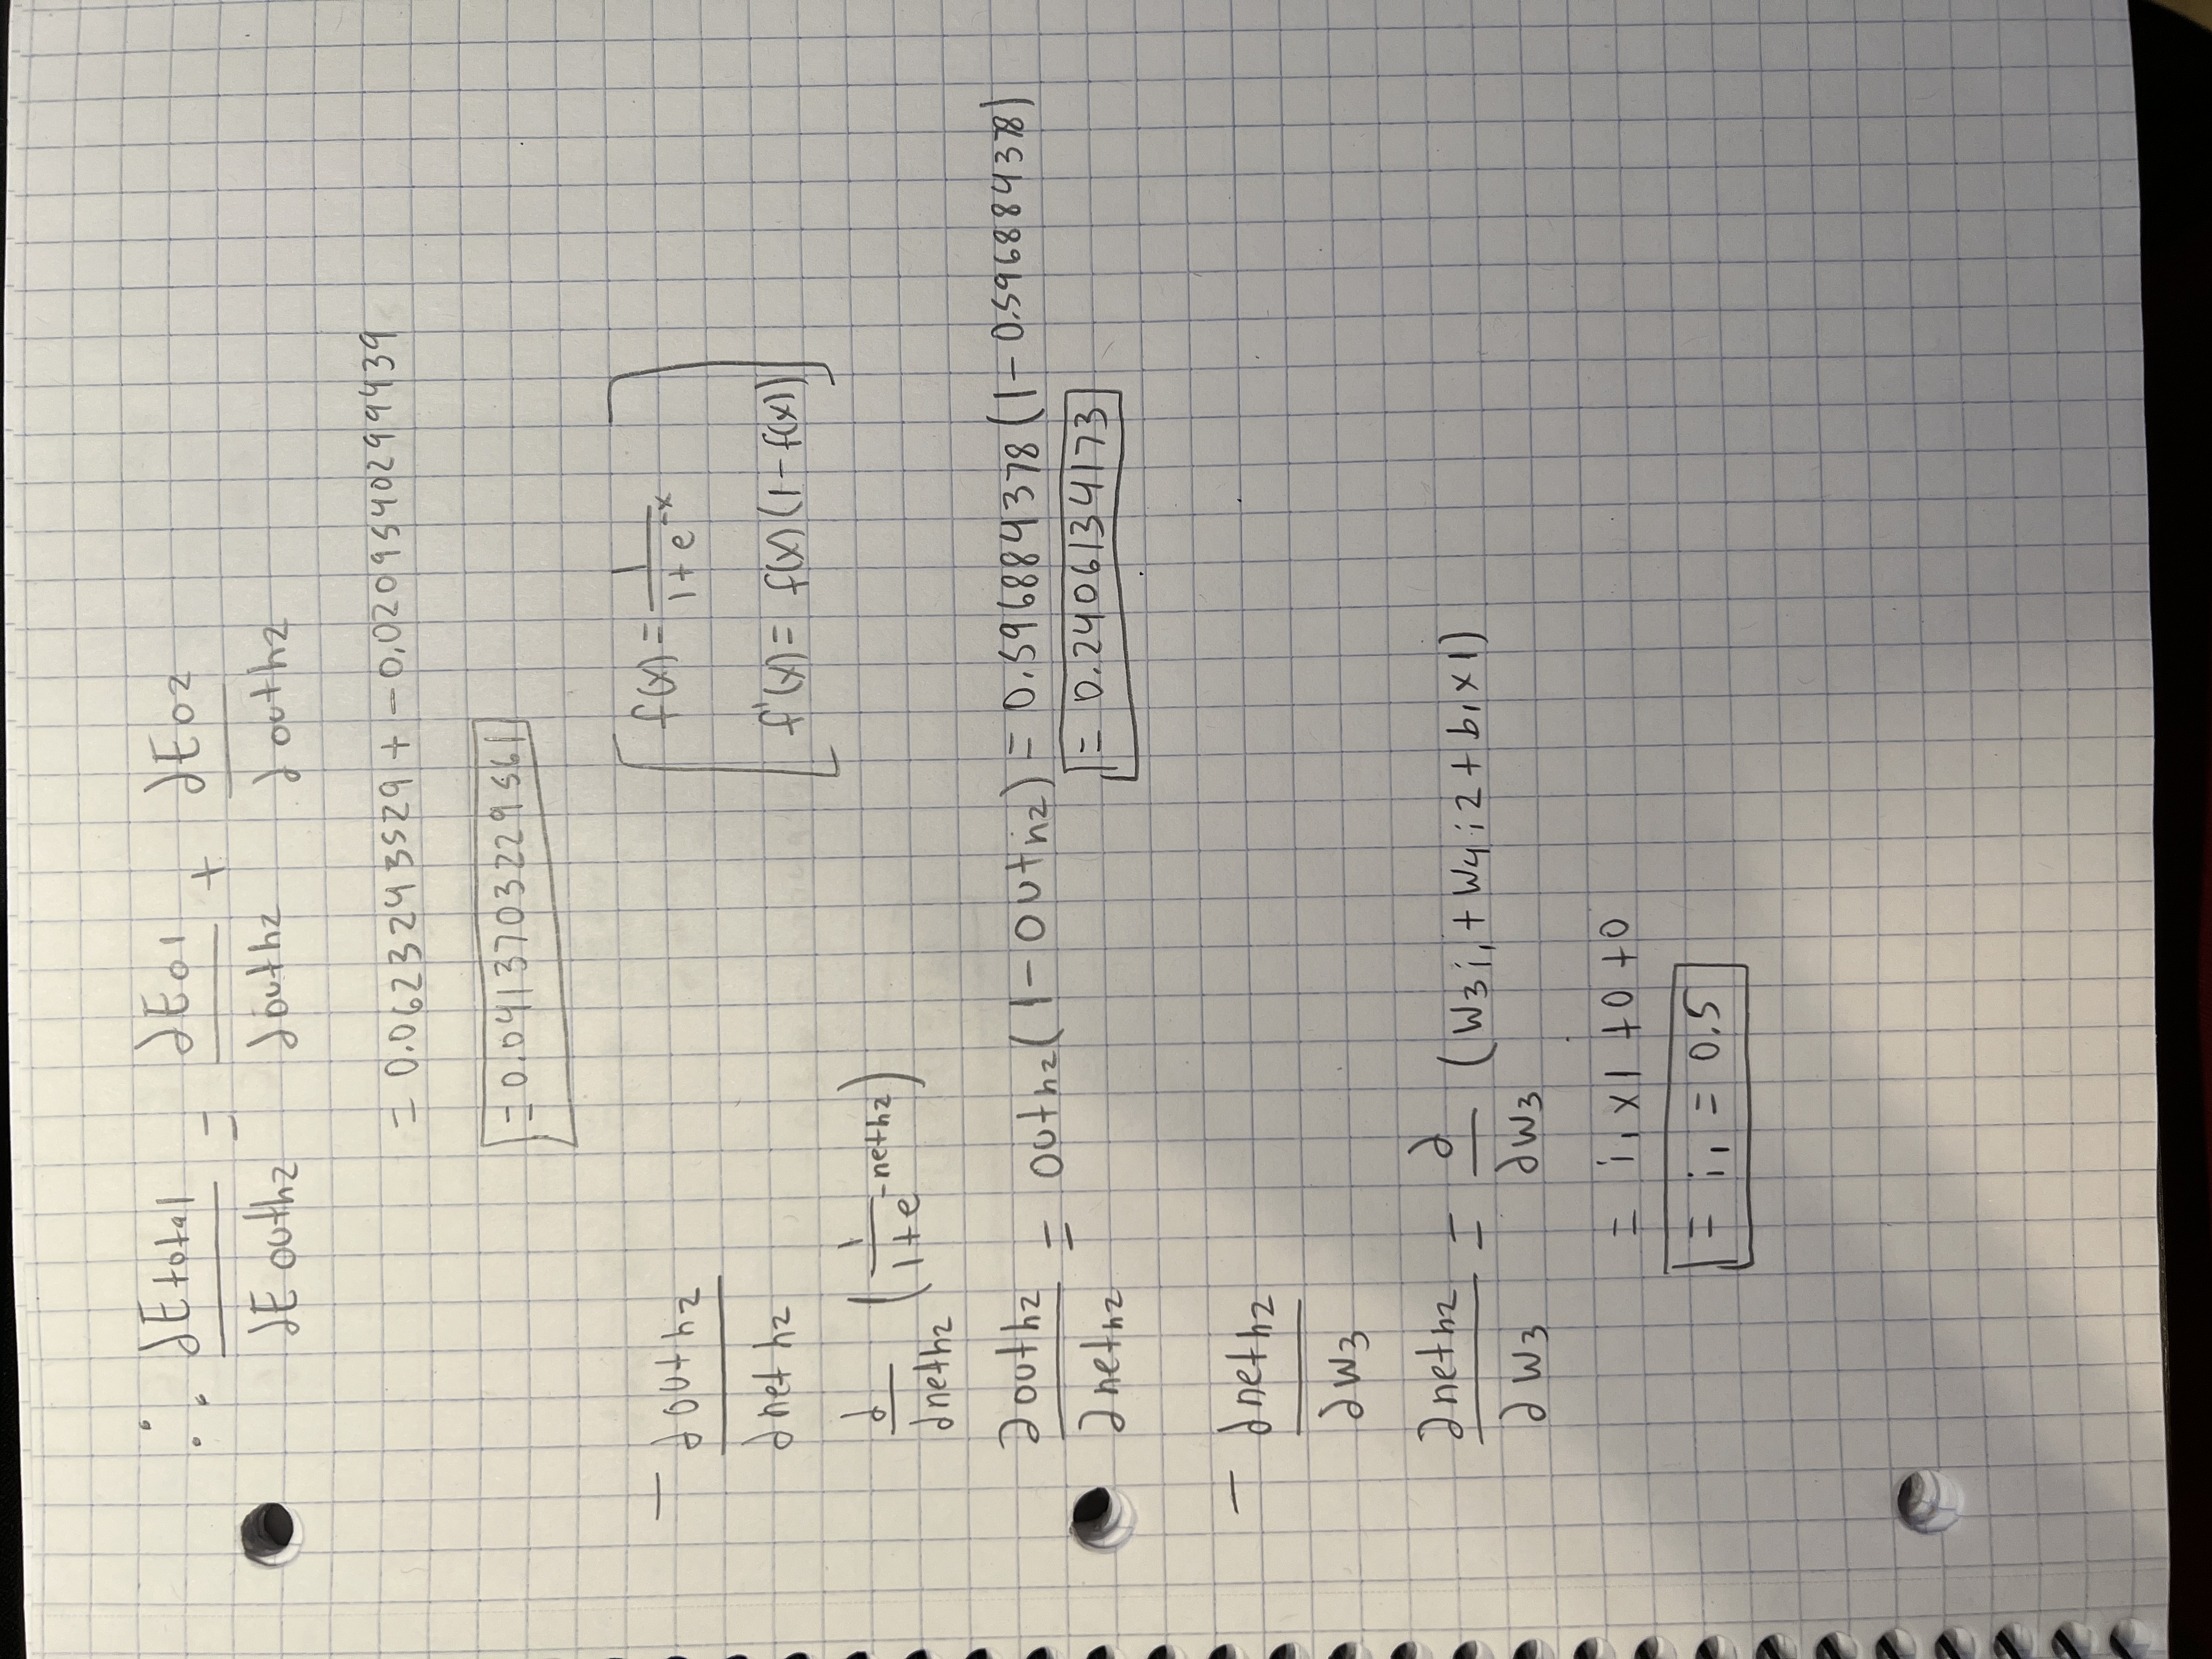 ∴ ∂Etotal/∂Eouth2 = ∂Eo1/∂outh2 + ∂Eo2/∂outh2
= 0.0623243529 + -0.0209540299439
= 0.0413703229561
- ∂outh2/∂neth2
[f(x) = 1/(1+e^-x)
f'(x) = f(x)(1-f(x))]
∂/∂neth2 (1/(1+e^-neth2))
∂outh2/∂neth2 = outh2(1-outh2) = 0.596884378(1-0.596884378)
= 0.2406134173
- ∂neth2/∂w3
∂neth2/∂w3 = ∂/∂w3 (w3i1 + w4i2 + b1×1)
= i1×1+0+0
= i1 = 0.5